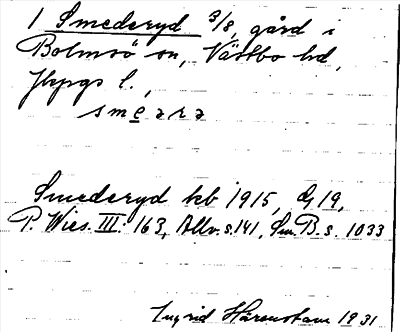 1 Smederyd 3/8, gård i
Bolmsö sn, Västbo hd,
Jkpgs l.,
smeara
Smederyd kb 1915, G 19,
P. Wies. III: 163, Allv. s. 141, Sm. B. s. 1033
Ingrid Härenstam 1931